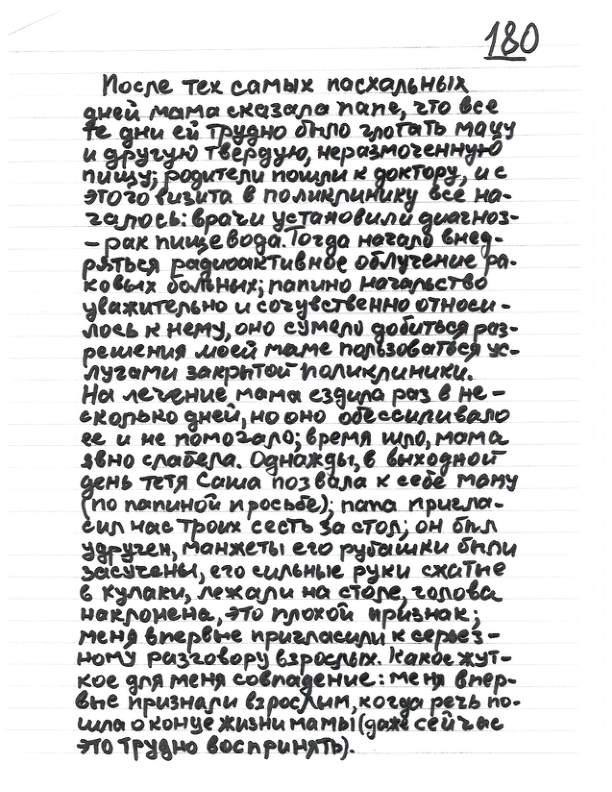 180
После тех самых пасхальных
дней мама сказала папе, что все
те дни ей трудно было глотать мацу
и другую твёрдую, неразмоченную
пищу; родители пошли к доктору, и с
этого визита в поликлинику всё на-
чалось: врачи установили диагноз-
– рак пищевода. Тогда начало внед-
ряться радиоактивное облучение ра-
ковых больных; папино начальство
уважительно и сочувственно относи-
лось к нему, оно сумело добиться раз-
решения моей маме пользоваться ус-
лугами закрытой поликлиники.
На лечение мама ездила раз в не-
сколько дней, но оно обессиливало
ее и не помогало; время шло, мама
явно слабела. Однажды, в выходной
день тётя Саша позвала к себе маму
(по папиной просьбе); папа пригла-
сил нас троих сесть за стол; он был
удручен, манжеты его рубашки были
засучены, его сильные руки сжатые
в кулаки, лежали на столе, голова
наклонена, это плохой признак;
меня впервые пригласили к серьез-
ному разговору взрослых. Какое жут-
кое для меня совпадение: меня впер-
вые признали взрослым, когда речь по-
шла о конце жизни мамы (даже сейчас
это трудно воспринять).